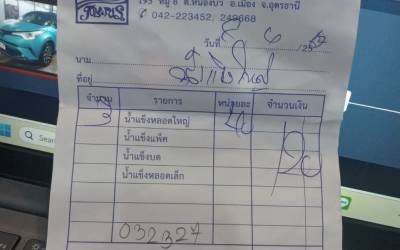 193 หมู่ 8 ต.หนองบัว อ.เมือง จ.อุดรธานี
✆ 042-223452, 249668
วันที่ 5 / 6 /
นาม
ที่อยู่
จำนวน รายการ หน่วยละ จำนวนเงิน
3 น้ำแข็งหลอดใหญ่ 40 120
น้ำแข็งแพ็ค
น้ำแข็งบด
น้ำแข็งหลอดเล็ก
032327
Sear